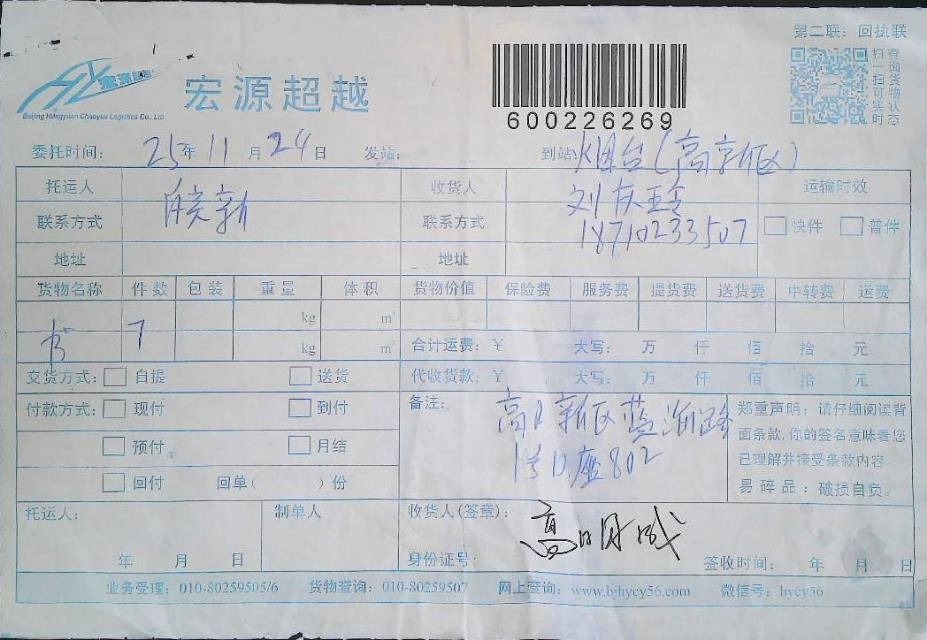 第二联：回执联
宏源超越
Beijing Hongyuan Chaoyue Logistics Co., Ltd
600226269
扫一扫可实时
查询货物状态
委托时间： 25年 11 月 24 日 发站： 到站：烟台(高新区)
托运人 晓新 收货人 刘庆玉 运输时效
联系方式 联系方式 18710233507 快件 普件
地址 地址
货物名称 件数 包装 重量 体积 货物价值 保险费 服务费 提货费 送货费 中转费 运费
kg m³
书 7 kg m³ 合计运费：￥ 大写： 万 仟 佰 拾 元
交货方式： 自提 送货 代收货款：￥ 大写： 万 仟 佰 拾 元
付款方式： 现付 到付 备注： 高新区蓝海路
预付 月结 1号D座802
回付 回单( )份
郑重声明：请仔细阅读背
面条款,你的签名意味着您
已理解并接受条款内容
易碎品：破损自负。
托运人： 制单人 收货人(签章)： 高明成
年 月 日 身份证号： 签收时间： 年 月 日
业务受理：010-80259505/6 货物查询：010-80259507 网上查询：www.bjhycy56.com 微信号：hycy56